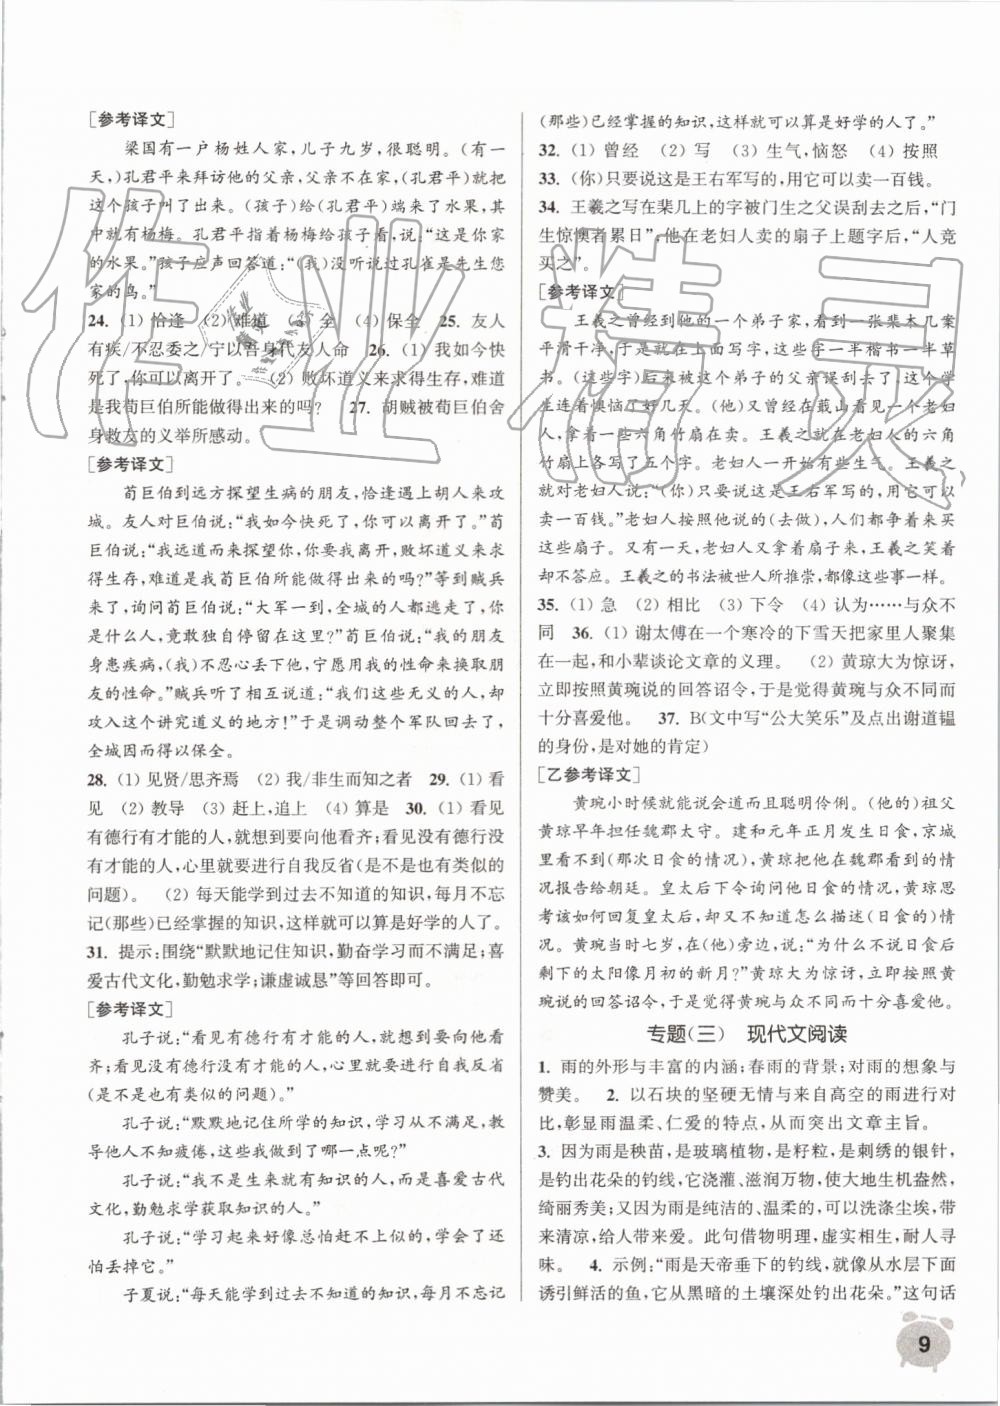 [参考译文]
梁国有一户杨姓人家,儿子九岁,很聪明。(有一
天,)孔君平来拜访他的父亲,父亲不在,(孔君平)就把
这个孩子叫了出来。(孩子)给(孔君平)端来了水果,其
中就有杨梅。孔君平指着杨梅给孩子看,说:“这是你家
的水果。”孩子应声回答道:“(我)没听说过孔雀是先生您
家的鸟。”
24. (1) 恰逢 (2) 难道 (3) 全 (4) 保全 25. 友人
有疾/不忍委之/宁以吾身代友人命 26. (1) 我如今快
死了,你可以离开了。 (2) 败坏道义来求得生存,难道
是我荀巨伯所能做得出来的吗? 27. 胡贼被荀巨伯舍
身救友的义举所感动。
[参考译文]
荀巨伯到远方探望生病的朋友,恰逢遇上胡人来攻
城。友人对巨伯说:“我如今快死了,你可以离开了。”荀
巨伯说:“我远道而来探望你,你要我离开,败坏道义来求
得生存,难道是我荀巨伯所能做得出来的吗?”等到贼兵
来了,询问荀巨伯说:“大军一到,全城的人都逃走了,你是
什么人,竟敢独自停留在这里?”荀巨伯说:“我的朋友
身患疾病,(我)不忍心丢下他,宁愿用我的性命来换取朋
友的性命。”贼兵听了相互说道:“我们这些无义的人,却
攻入这个讲究道义的地方!”于是调动整个军队回去了,
全城因而得以保全。
28. (1) 见贤/思齐焉 (2) 我/非生而知之者 29. (1) 看
见 (2) 教导 (3) 赶上,追上 (4) 算是 30. (1) 看见
有德行有才能的人,就想到要向他看齐;看见没有德行没
有才能的人,心里就要进行自我反省(是不是也有类似的
问题)。 (2) 每天能学到过去不知道的知识,每月不忘
记(那些)已经掌握的知识,这样就可以算是好学的人了。
31. 提示:围绕“默默地记住知识,勤奋学习而不满足;喜
爱古代文化,勤勉求学;谦虚诚恳”等回答即可。
[参考译文]
孔子说:“看见有德行有才能的人,就想到要向他看
齐;看见没有德行没有才能的人,心里就要进行自我反省
(是不是也有类似的问题)。”
孔子说:“默默地记住所学的知识,学习从不满足,教
导他人不知疲倦,这些我做到了哪一点呢?”
孔子说:“我不是生来就有知识的人,而是喜爱古代
文化,勤勉求学获取知识的人。”
孔子说:“学习起来好像总怕赶不上似的,赶上了还
怕丢掉它。”
子夏说:“每天能学到过去不知道的知识,每月不忘记
(那些)已经掌握的知识,这样就可以算是好学的人了。”
32. (1) 曾经 (2) 写 (3) 生气,恼怒 (4) 按照
33. (你)只要说这是王右军写的,用它可以卖一百钱。
34. 王羲之写在棐几上的字被门生之父误刮去之后,“门
生惊懊者累日”,他在老妇人卖的扇子上题字后,“人竞
买之”。
[参考译文]
王羲之曾经到他的一个弟子家,看到一张棐木几案
平滑干净,于是就在上面写字,这些字一半楷书一半草
书。(这些字)后来被这个弟子的父亲误刮去了,这个学
生连着懊恼了好几天。(他)又曾经在蕺山看见一个老妇
人,拿着一些六角竹扇在卖。王羲之就在老妇人的六角
竹扇上各写了五个字。老妇人一开始有些生气。王羲之
就对老妇人说:“(你)只要说这是王右军写的,用它可以
卖一百钱。”老妇人按照他说的(去做),人们都争着来买
这些扇子。又有一天,老妇人又拿着扇子来,王羲之笑着
却不答应。王羲之的书法被世人所推崇,都像这些一样。
35. (1) 急 (2) 相比 (3) 下令 (4) 认为……与众不
同 36. (1) 谢太傅在一个寒冷的下雪天把家里人聚集
在一起,和小辈谈论文章的义理。 (2) 黄琼大为惊讶,
立即按照黄琬说的回答诏令,于是觉得黄琬与众不同而
十分喜爱他。 37. B(文中写“公大笑乐”及点出谢道韫
的身份,是对她的肯定)
[乙参考译文]
黄琬小时候就能说会道而且聪明伶俐。(他的)祖父
黄琼早年担任魏郡太守。建和元年正月发生日食,京城
里看不到(那次日食的情况),黄琼把他在魏郡看到的情
况报告给朝廷。皇太后下令询问他日食的情况,黄琼思
考该如何回复皇太后,却又不知道怎么描述(日食的)情
况。黄琬当时七岁,在(他)旁边,说:“为什么不说日食后
剩下的太阳像月初的新月?”黄琼大为惊讶,立即按照黄
琬说的回答诏令,于是觉得黄琬与众不同而十分喜爱他。
专题(三) 现代文阅读
1. 雨的外形与丰富的内涵;春雨的背景;对雨的想象与
赞美。 2. 以石块的坚硬无情与来自高空的雨进行对
比,彰显雨温柔、仁爱的特点,从而突出文章主旨。
3. 因为雨是秧苗,是玻璃植物,是籽粒,是刺绣的银针,
是钓出花朵的钓线,它浇灌、滋润万物,使大地生机盎然,
绮丽秀美;又因为雨是纯洁的、温柔的,可以洗涤尘埃,带
给人希望,给人带来爱。此句借物明理,虚实相生,耐人寻
味。 4. 示例:“雨是天帝垂下的钓线,就像从水层下面
诱引鲜活的鱼,它从黑暗的土壤深处钓出花朵。”这句话
9
作业精灵